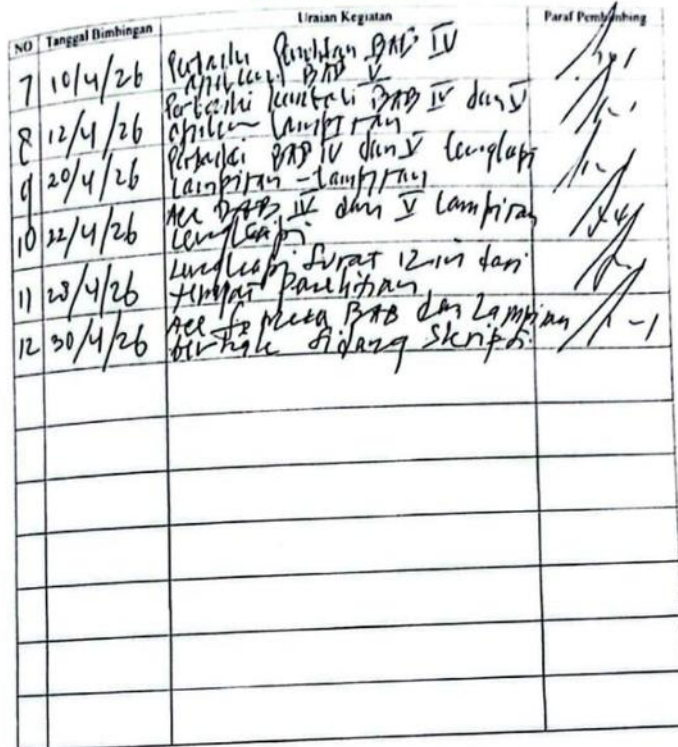 NO Tanggal Bimbingan Uraian Kegiatan Paraf Pembimbing
7 10/4/26 Perbaiki Penulisan BAB IV
BAB V
8 12/4/26 Perbaiki kembali BAB IV dan V
lampiran
9 20/4/26 Perbaiki BAB IV dan V lengkapi
lampiran-lampiran
10 22/4/26 Acc BAB IV dan V lampiran
lengkapi
11 28/4/26 Lengkapi surat izin dari
tempat penelitian
12 30/4/26 Acc BAB dan lampiran
sidang skripsi